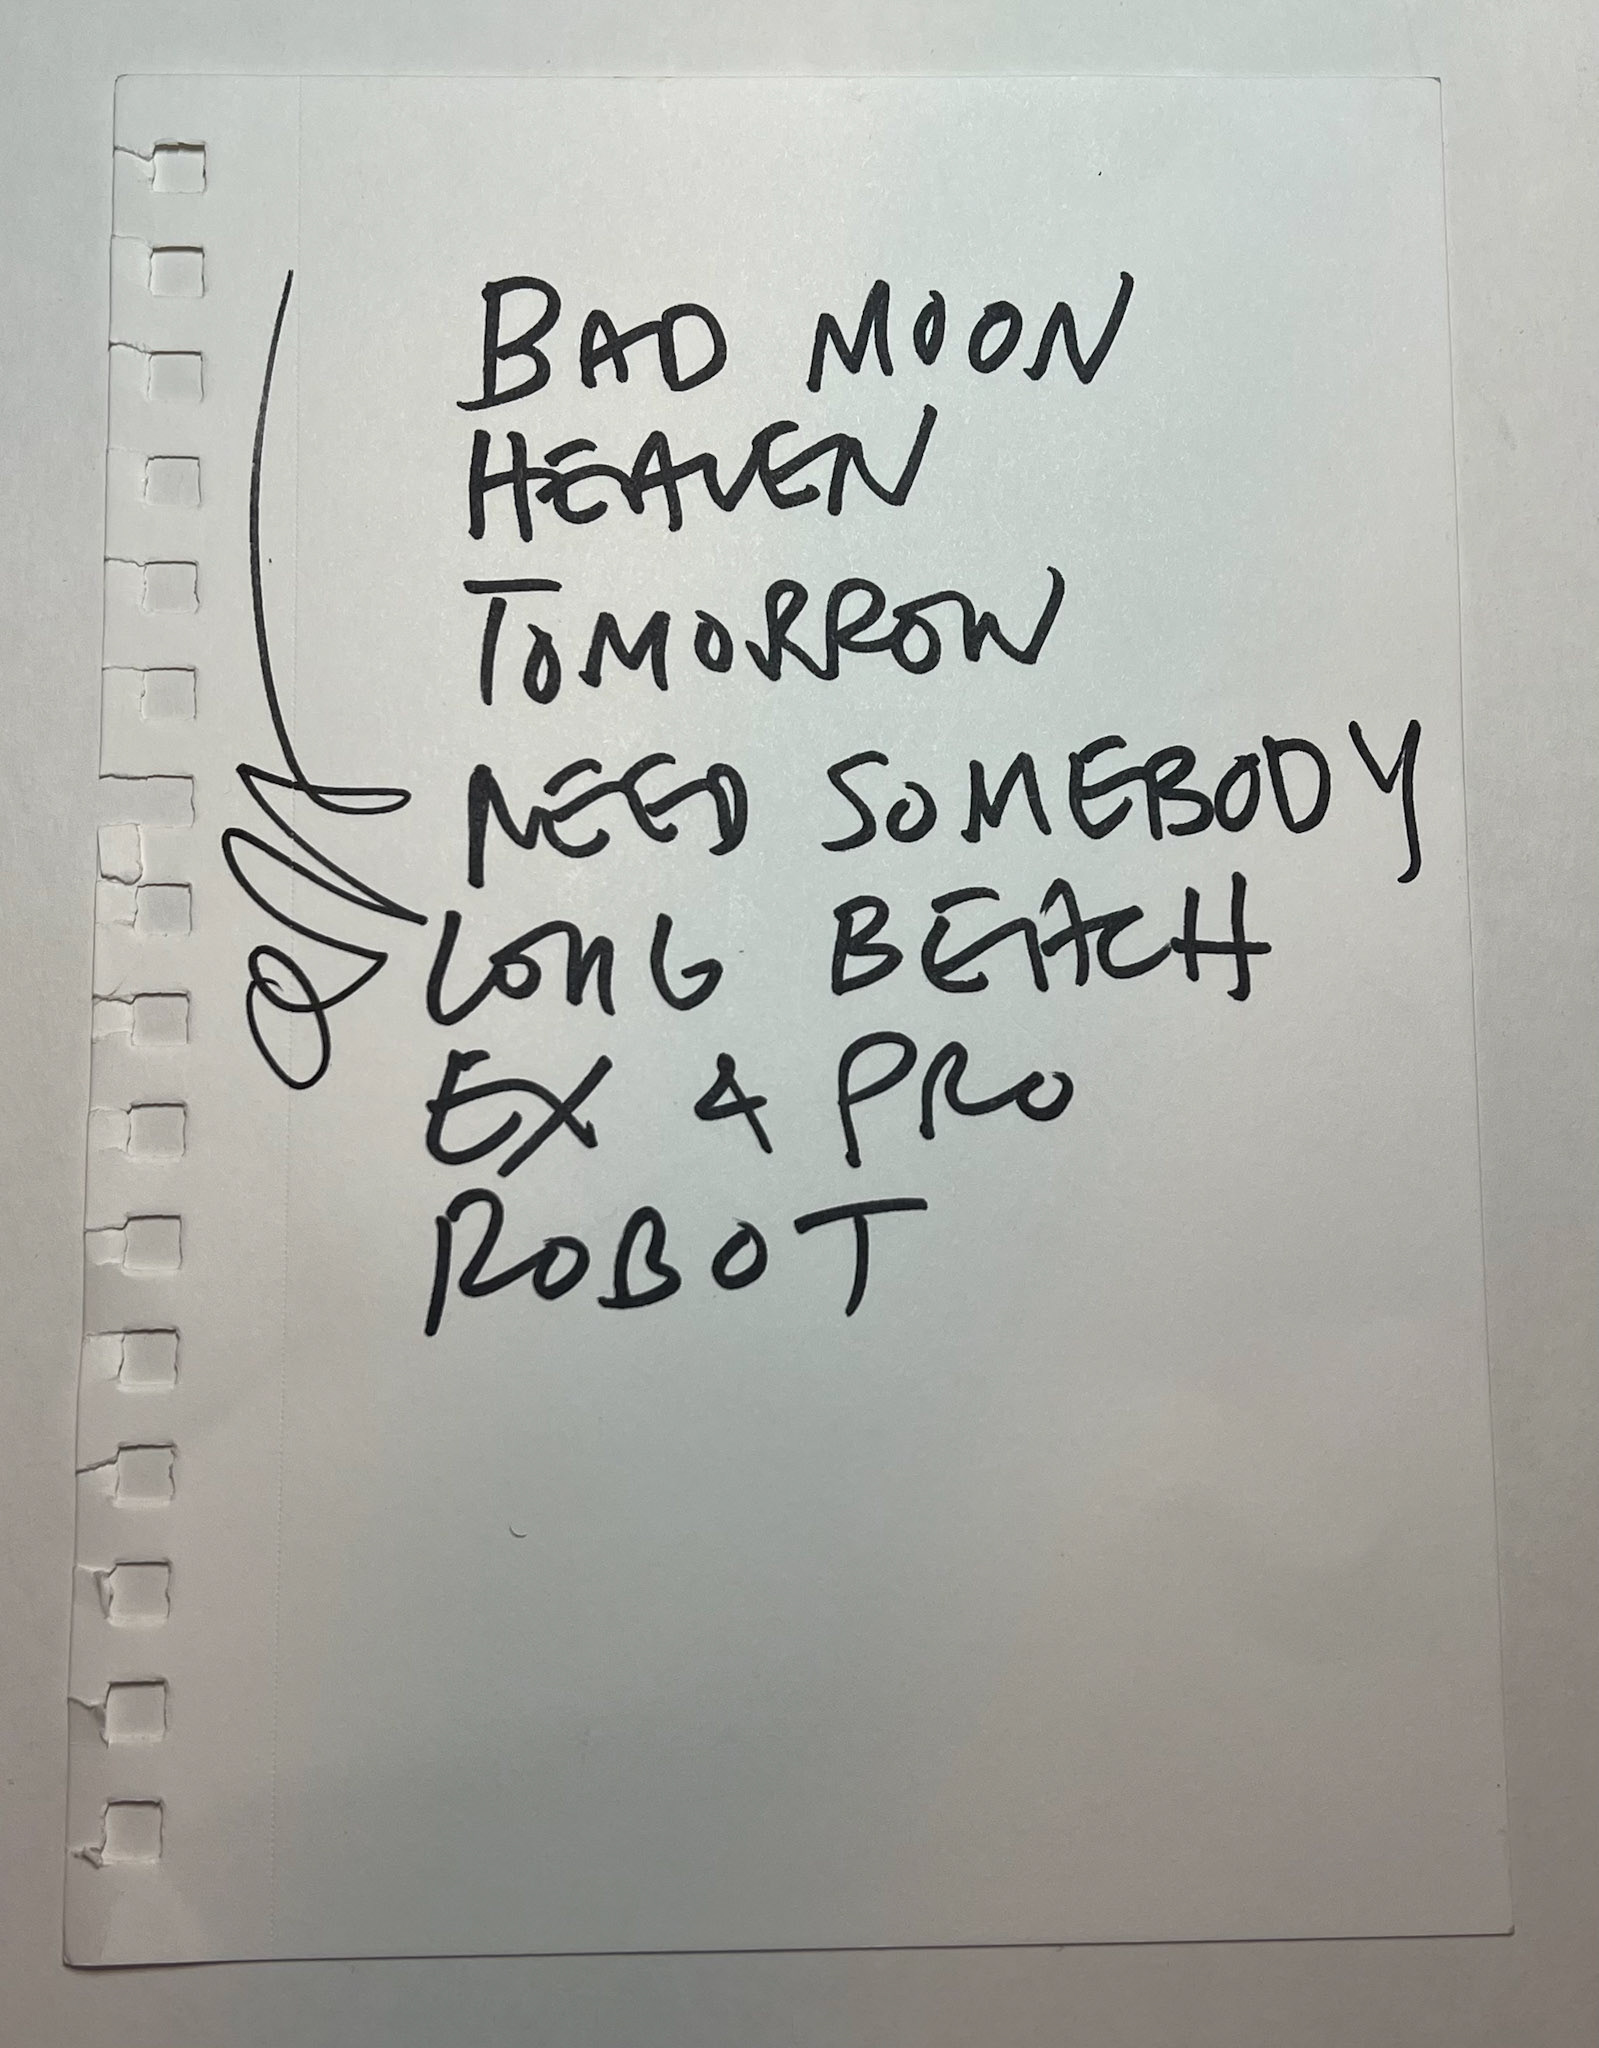 BAD MOON
HEAVEN
TOMORROW
NEED SOMEBODY
LONG BEACH
EX 4 PRO
ROBOT